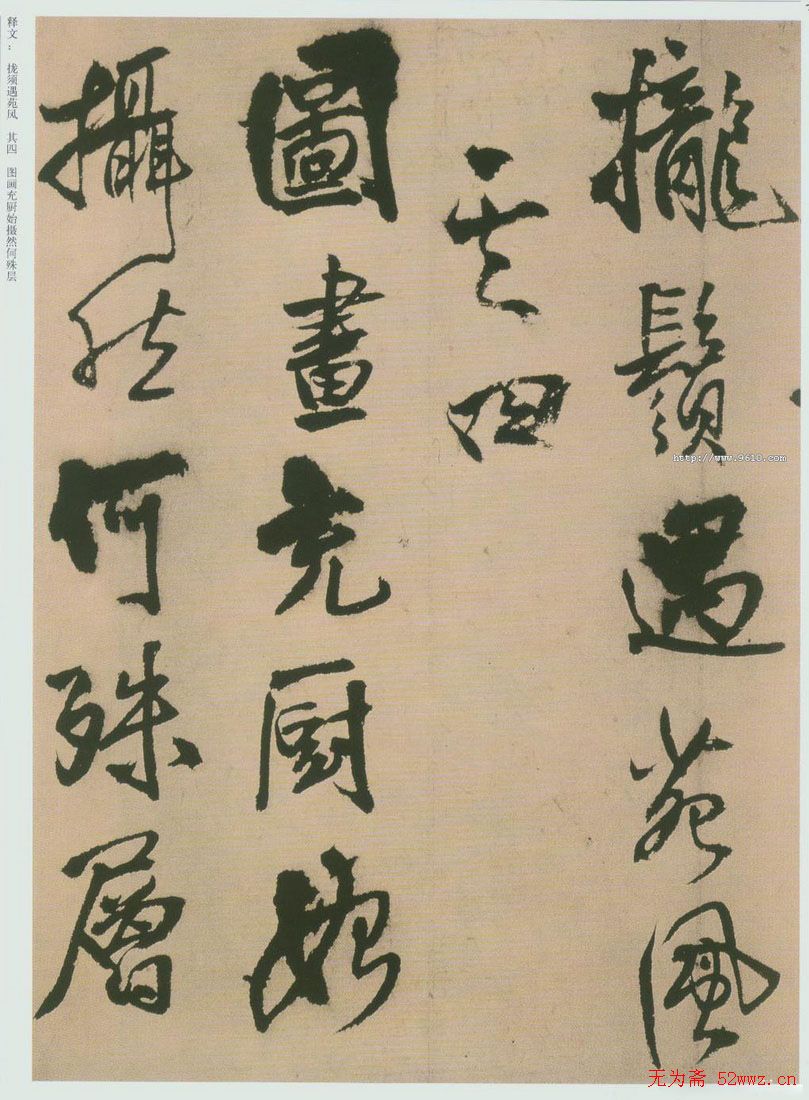 攏鬚遇苑風
其四
圖畫充厨始
攝然何殊層
释文： 拢须遇苑风 其四 图画充厨始摄然何殊层
http://www.9610.com
无为斋 52wwz.cn